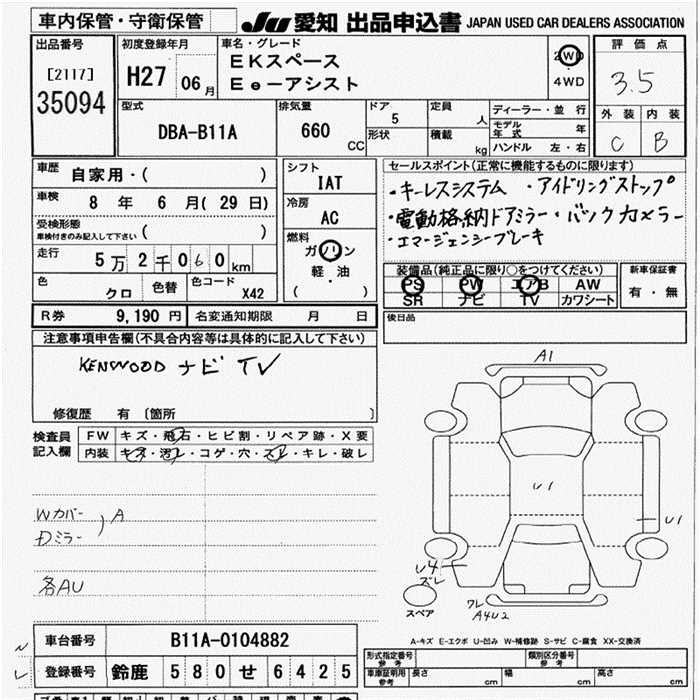 車内保管・守衛保管
JU 愛知 出品申込書 JAPAN USED CAR DEALERS ASSOCIATION
出品番号
[2117]
35094
初度登録年月
H27 06 月
車名・グレード
EKスペース
Eeーアシスト
2WD
4WD
評価点
3.5
外装 内装
C B
型式
DBA-B11A
排気量
660 CC
ドア
5
形状
定員
人
積載
kg
ディーラー・並行
モデル年式 年
ハンドル 左・右
車歴
自家用・( )
車検
8 年 6 月(29 日)
受検形態
車検付きのみ記入して下さい ( )
走行
5万2千060km
色
クロ
色替
色コード
X42
シフト
IAT
冷房
AC
燃料
ガソリン
軽・油
( )
セールスポイント(正常に機能するものに限ります)
・キーレスシステム ・アイドリングストップ
・電動格納ドアミラー・バックカメラー
・エマージェンシーブレーキ
装備品(純正品に限り○をつけてください)
PS PW エアB AW
SR ナビ TV カワシート
新車保証書
有・無
R券 9,190 円 名変通知期限 月 日
後日品
注意事項申告欄(不具合内容等は具体的に記入して下さい)
KENWOOD ナビ TV
修復歴 有 〔箇所 〕
検査員記入欄
FW キズ・飛石・ヒビ割・リペア跡・X要
内装 キズ・汚レ・コゲ・穴・スレ・キレ・破レ
Wカバー
Dミラー ) A
各AU
A1
U1
U1
U4
ズレ
スペア
ワレ
A4U2
A-キズ E-エクボ U-凹み W-補修跡 S-サビ C-腐食 XX-交換済
車台番号 B11A-0104882
登録番号 鈴鹿 580 せ 6425
形式指定番号 参考
類別区分番号 参考
車庫証明用 参考 長さ cm 幅 cm 高さ cm